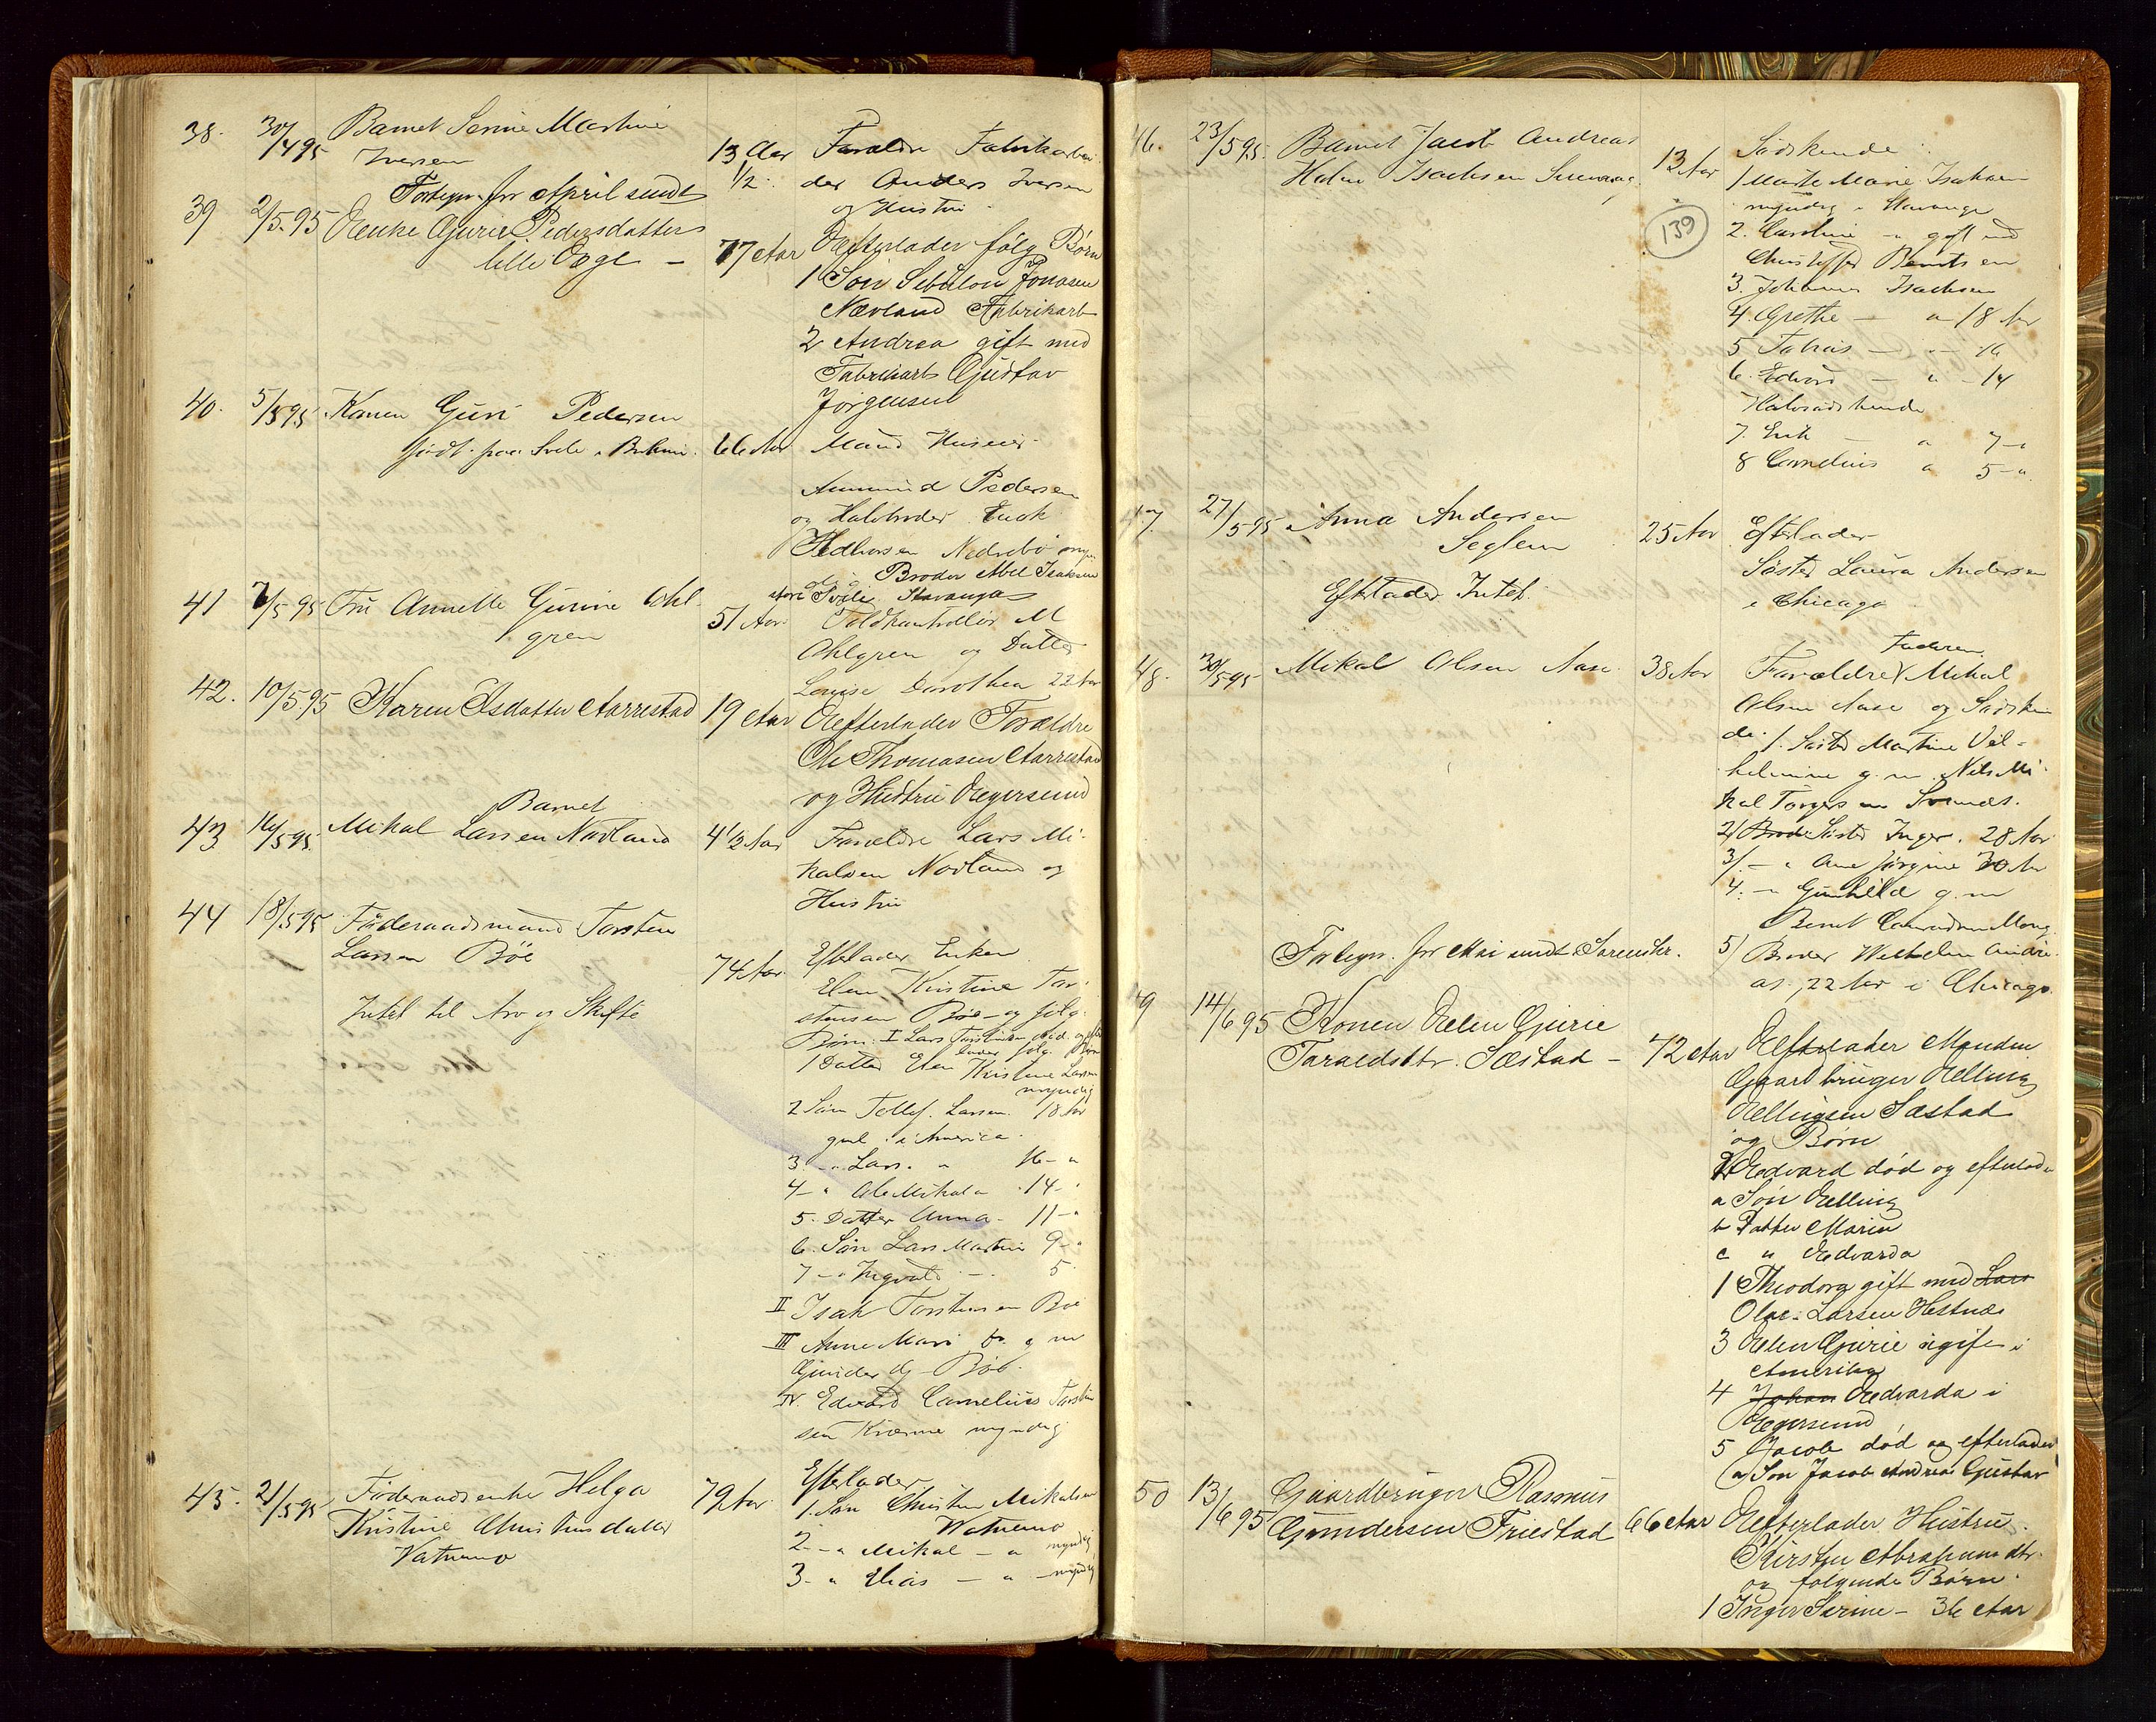 38. 30/4 95 Barnet Serine Martine
Iversen 13 Aar Forældre Fabrikarbei
1/2 der Anders Iversen
og Hustru
Fortegn. for April sendt
39 2/5.95 Enke Gurie Pedersdatter
lille Ege – 77 Aar Efterlader følg Børn
1 Søn Sebulon Jonasen
Nævland Fabrikarb
2 Andrea gift med
Fabrikarb Gustav
Jørgensen
40. 5/5 95 Konen Guri Pedersen
født paa Svele 66 Aar Mand Huseier
Ammund Pedersen
og Halvbroder Enok
Nedrebø
Broder Abel Isaksen
Svele Stavanger
41 7/5 95 Fru Annette Gurine Ohl
gren 51 Aar Toldkontrollør M
Ohlgren og Datter
Louise Dorothea 22 Aar
42. 10/5.95 Karen Olsdatter Aarrestad 19 Aar Efterlader Forældre
Ole Thomasen Aarrestad
og Hustru Egersund
Barnet
43 14/5 95. Mikal Larsen Nodland 4 1/2 Aar Forældre Lars Mi-
kalsen Nodland og
Hustru
44 18/5 95 Føderaadsmand Torsten
Larsen Bøe 74 Aar. Efterlader Enken
Elen Kristine Tor-
stensen Bøe – og følg.
Børn: I Lars Torstensen død og efter
lader følg. Børn
Intet til Arv og Skifte
1 Datter Elen Kristine Larsen
myndig
2 Søn Tollef Larsen 18 Aar
i America.
3 – " Lars " 16 – "
4 – " Ole Mikal " 14 – "
5. Datter Anna – 11 – "
6. Søn Lars Martin 9 – "
7 – " Ingvald – 5
II Isak Torstensen Bøe
III Anne Mari g m
Bøe.
IV. Edvard Cornelius Torsten
sen Kværme myndig
45. 21/5 95 Føderaadsenke Helga
Kristine Christensdatter
Vatnemo 79 Aar Efterlader
1. Søn Christen Mikalsen
Vatnemo
2 – " Mikal – " myndig
3 – " Elias – " – myndig
46. 23/5 95. Barnet Jacob Andreas
Holm Isachsen 13 Aar Sødskende
139
1 Marte Marie Isachsen
myndig i Stavanger
2. Caroline – " gift med
Christoffer Berntsen
3. Johannes Isachsen
4. Grethe – " 18 Aar
5 Tobias – " – 16
6. Edvard – " – 14
Halvsødskende
7. Erik – " 7 – "
8 Cornelius " 5 – "
47. 27/5 95 Anna Andersen
Seglem 25 Aar Efterlader
Søster Laura Andersen
i Chicago
Efterlader Intet.
48. 30/5 95 Mikal Olsen Aase 38 Aar Forældre Faderen Mikal
Olsen Aase og Sødsken
de. 1. Søster Martine Vil-
helmine g. m. Nils Mi-
kal Torgersen Svanes.
2) Brode Søster Inger. 28 Aar
3/. – " Ane Jørgine 30 Aar
4. – " Gunhild g. m
Bernt Conradsen Mong.
5) Broder Wilhelm Andre-
as, 22 Aar i Chicago.
Fortegn. for Mai sendt Sorenskr.
49 14/6 95 Konen Elen Gurie
Taraldsdtr. Sæstad – 72 Aar Efterlader Manden
Gaardbruger Elling
Ellingsen Sæstad
og Børn
2 Edvard død og efterlader
a Søn Elling
b Datter Marie
c " Edvarda
1 Theodora gift med Lars
Olai Larsen Hestnes
3 Elen Gurie ugift i
Amerika
4 Johan Edvarda i
Egersund
5 Jacob død og efterlader
a) Søn Jacob Andreas Gustav
50 13/6 95 Gaardbruger Rasmus
Gundersen Friestad 66 Aar Efterlader Hustru
Kirsten Abrahamsdtr.
og følgende Børn.
1 Inger Serine – 36 Aar